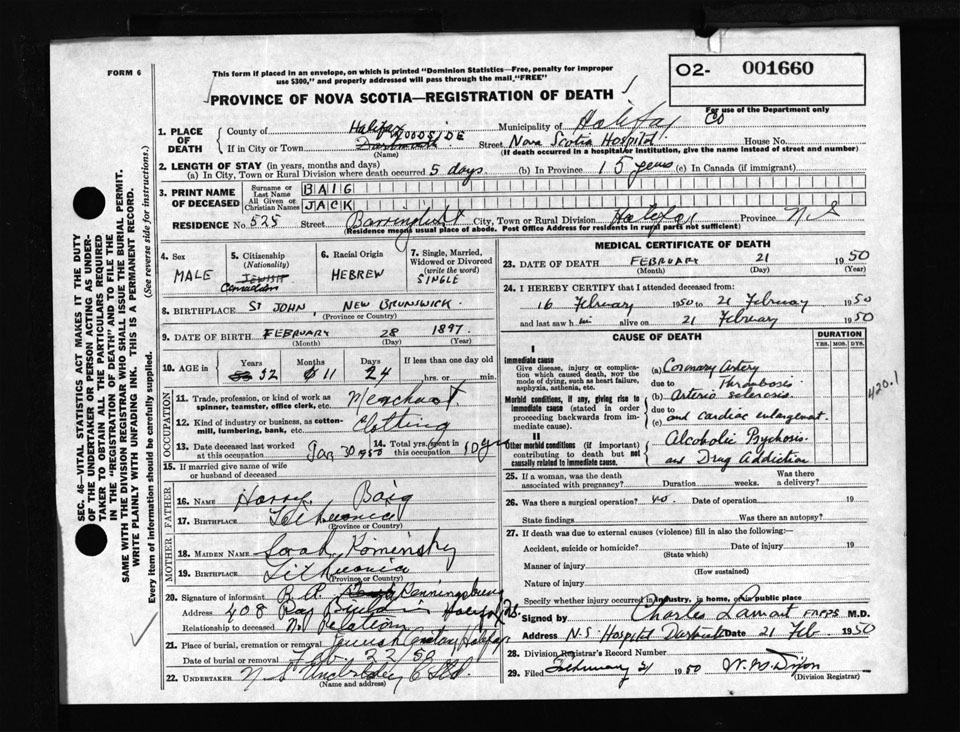 FORM 6
This form if placed in an envelope, on which is printed "Dominion Statistics—Free, penalty for improper
use $300," and properly addressed will pass through the mail, "FREE"
O2- 001660
For use of the Department only
PROVINCE OF NOVA SCOTIA—REGISTRATION OF DEATH
1. PLACE OF DEATH
County of Halifax Municipality of Halifax Co
If in City or Town Dartmouth WOODSIDE Street Nova Scotia Hospital House No.
(Name) (If death occurred in a hospital or institution, give the name instead of street and number)
2. LENGTH OF STAY (in years, months and days)
(a) In City, Town or Rural Division where death occurred 5 days (b) In Province 15 years (c) In Canada (if immigrant)
3. PRINT NAME OF DECEASED
Surname or Last Name BAIG
All Given or Christian Names JACK
RESIDENCE No. 525 Street Barrington St City, Town or Rural Division Halifax Province N S
(Residence means usual place of abode. Post Office Address for residents in rural parts not sufficient)
4. Sex MALE
5. Citizenship (Nationality) JEWISH Canadian
6. Racial Origin HEBREW
7. Single, Married, Widowed or Divorced (write the word) SINGLE
8. BIRTHPLACE ST JOHN, NEW BRUNSWICK.
(Province or Country)
9. DATE OF BIRTH FEBRUARY 28 1897
(Month) (Day) (Year)
10. AGE IN Years 52 Months 11 Days 24 If less than one day old
hrs. or min.
OCCUPATION
11. Trade, profession, or kind of work as spinner, teamster, office clerk, etc. Merchant
12. Kind of industry or business, as cotton-mill, lumbering, bank, etc. Clothing
13. Date deceased last worked at this occupation Jan 30 1950 14. Total yrs. spent in this occupation 30 yrs
15. If married give name of wife or husband of deceased
FATHER
16. NAME Harry Baig
17. BIRTHPLACE Lithuania
(Province or Country)
MOTHER
18. MAIDEN NAME Sarah Kominsky
19. BIRTHPLACE Lithuania
(Province or Country)
20. Signature of informant B. A.
Address 408 Roy Building Halifax N.S.
Relationship to deceased No relation
21. Place of burial, cremation or removal Jewish Cemetery Halifax
Date of burial or removal Feb. 22 50
22. UNDERTAKER N S Undertaking Co Ltd.
(Name and address)
MEDICAL CERTIFICATE OF DEATH
23. DATE OF DEATH FEBRUARY 21 1950
(Month) (Day) (Year)
24. I HEREBY CERTIFY that I attended deceased from:
16 February 1950 to 21 February 1950
and last saw h im alive on 21 February 1950
CAUSE OF DEATH
DURATION
YRS. MOS. DYS.
I
Immediate cause
Give disease, injury or complication which caused death, not the mode of dying, such as heart failure, asphyxia, asthenia, etc.
(a) Coronary Artery
due to Thrombosis
Morbid conditions, if any, giving rise to immediate cause (stated in order proceeding backwards from immediate cause).
(b) Arterio sclerosis.
due to
(c) and cardiac enlargement.
420.1
II
Other morbid conditions (if important) contributing to death but not causally related to immediate cause.
Alcoholic Psychosis.
and Drug Addiction
25. If a woman, was the death associated with pregnancy? Duration weeks. Was there a delivery?
26. Was there a surgical operation? no. Date of operation 19
State findings Was there an autopsy?
27. If death was due to external causes (violence) fill in also the following:
Accident, suicide or homicide? Date of injury 19
(State which)
Manner of injury
(How sustained)
Nature of injury
Specify whether injury occurred in industry, in home, or in public place
Signed by Charles Lamont M.D.
Address N.S. Hospital Dartmouth Date 21 Feb 1950
28. Division Registrar's Record Number
29. Filed February 21 1950 Dixon
(Division Registrar)
SEC. 46—VITAL STATISTICS ACT MAKES IT THE DUTY
OF THE UNDERTAKER OR PERSON ACTING AS UNDER-
TAKER TO OBTAIN ALL THE PARTICULARS REQUIRED
IN THE "REGISTRATION OF DEATH" AND TO FILE THE
SAME WITH THE DIVISION REGISTRAR WHO SHALL ISSUE THE BURIAL PERMIT.
WRITE PLAINLY WITH UNFADING INK. THIS IS A PERMANENT RECORD.
Every item of information should be carefully supplied. (See reverse side for instructions.)